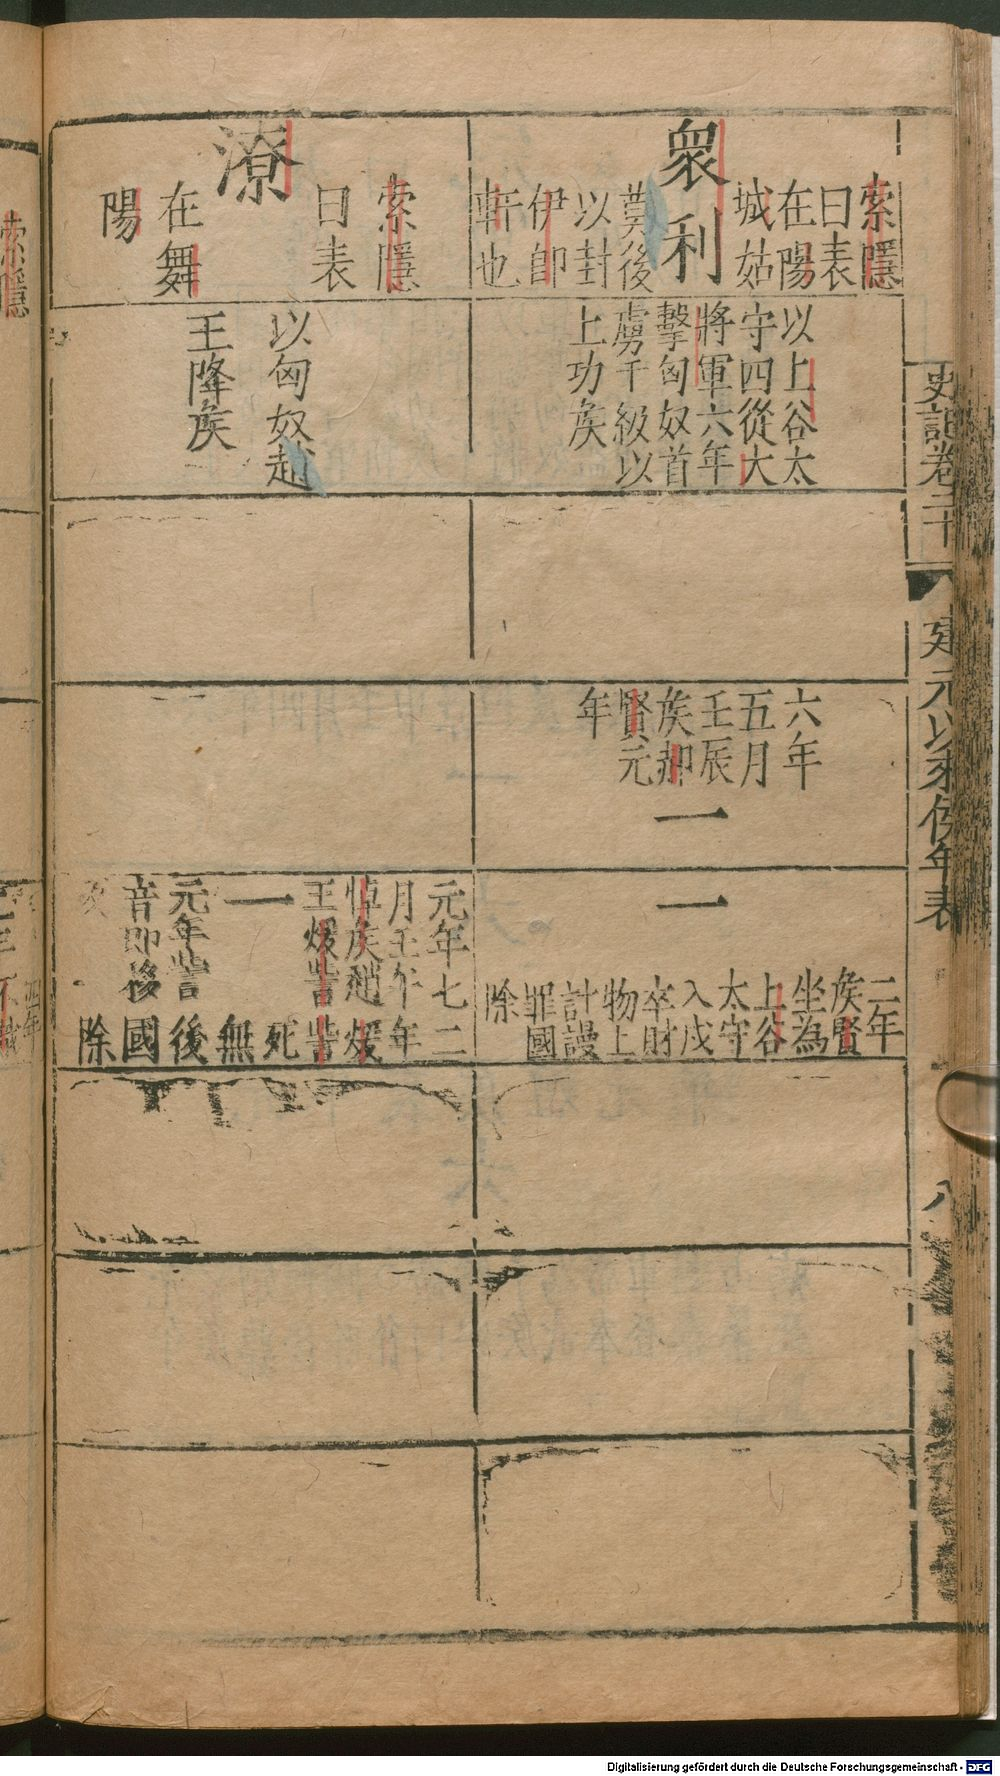 史記卷二十
建元以來侯年表
八
衆利
索隱
曰表
在陽
城姑
莫後
以封
伊即
軒也
以上谷太
守四從大
將軍六年
擊匈奴首
虜千級以
上功矦
六年
五月
壬辰
矦郝
賢元
年
一
一
二年
矦賢
坐為
上谷
太守
入戍
卒財
物上
計謾
罪國
除
潦
索隱
曰表
在舞
陽
以匈奴趙
王降矦
元年七
月壬午
悼矦趙
王煖訾
元年
二年
煖訾
死
無
後
國
除
一
元年訾
音即移
Digitalisierung gefördert durch die Deutsche Forschungsgemeinschaft - DFG